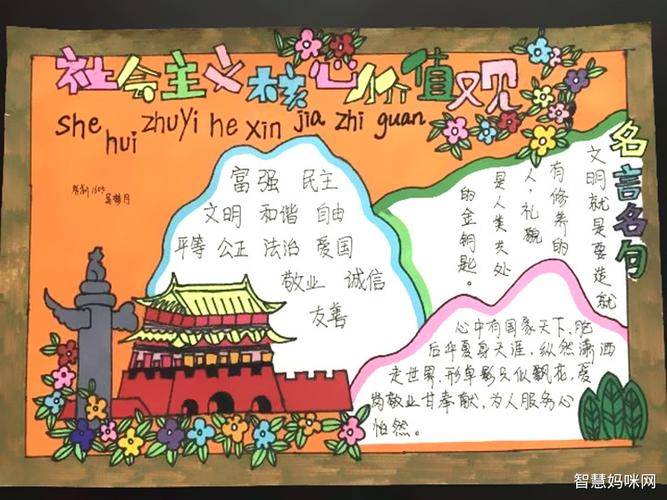 社会主义核心价值观
she hui zhuyi he xin jia zhi guan
1605
富强 民主
文明 和谐 自由
平等 公正 法治 爱国
敬业 诚信
友善
名言名句
文明就是要造就
有修养的
人，礼貌
是人类共处
的金钥匙。
心中有国家天下，肥
后华夏身天涯，纵然潇洒
走世界，形单影只似飘花，爱
岗敬业甘奉献，为人服务心
怡然。
智慧妈咪网